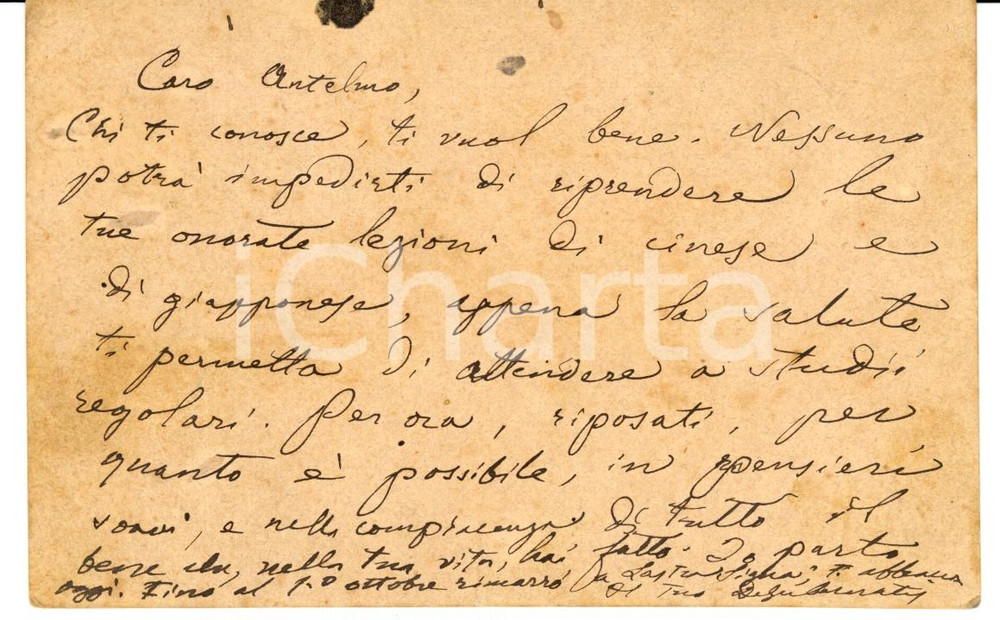 Caro Antelmo,
Chi ti conosce, ti vuol bene. Nessuno
potrà impedirti di riprendere le
tue onorate lezioni di cinese e
di giapponese, appena la salute
ti permetta di attendere a studii
regolari. Per ora, riposati, per
quanto è possibile, in pensieri
soavi, e nella compiacenza di tutto il
bene che, nella tua vita, hai fatto. Io parto
oggi. Fino al 1º ottobre rimarrò a Lastra Signa; t'abbraccia
il tuo De Gubernatis
iCharta